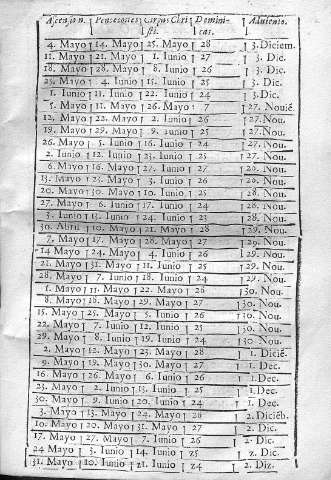 Ascension. Pentecostes Corpus Christi Domini- Aduiento.
cas.
4. Mayo 14. Mayo 25. Mayo 28 3. Diciem.
11. Mayo 21. Mayo 1. Iunio 27 3. Dic.
18. Mayo 28. Mayo 8. Iunio 26 3. Dic.
25. Mayo 4. Iunio 15. Iunio 25 3. Dic.
1. Iunio 11. Iunio 22. Iunio 24 3. Dic.
5. Mayo 15. Mayo 26. Mayo 27. Nouié.
12. Mayo 22. Mayo 2. Iunio 26 27. Nou.
19. Mayo 29. Mayo 9. Iunio 25 27. Nou.
26. Mayo 5. Iunio 16. Iunio 24 27. Nou.
2. Iunio 12. Iunio 23. Iunio 27. Nou.
6. Mayo 16. Mayo 27. Mayo 27 28. Nou.
13. Mayo 23. Mayo 3. Iunio 26 28. Nou.
20. Mayo 30. Mayo 10. Iunio 25 28. Nou.
27. Mayo 6. Iunio 17. Iunio 24 28. Nou.
3. Iunio 13. Iunio 24. Iunio 23 28. Nou.
30. Abril 10. Mayo 21. Mayo 28 29. Nou.
7. Mayo 17. Mayo 28. Mayo 27 29. Nou.
14. Mayo 24. Mayo 4. Iunio 26 29. Nou.
21. Mayo 31. Mayo 11. Iunio 25 29. Nou.
28. Mayo 7. Iunio 18. Iunio 24 29. Nou.
1. Mayo 11. Mayo 22. Mayo 30. Nou.
8. Mayo 18. Mayo 29. Mayo 27 30. Nou.
15. Mayo 25. Mayo 5. Iunio 26 30. Nou.
22. Mayo 7. Iunio 12. Iunio 25 30. Nou.
29. Mayo 8. Iunio 19. Iunio 24 30. Nou.
2. Mayo 12. Mayo 23. Mayo 28 1. Dicié.
9. Mayo 19. Mayo 30. Mayo 27 1. Dec.
16. Mayo 26. Mayo 6. Iunio 26 1. Dec.
23. Mayo 2. Iunio 13. Iunio 25 1. Dec.
30. Mayo 9. Iunio 20. Iunio 24 1. Dec.
3. Mayo 13. Mayo 24. Mayo 28 2. Diciéb.
10. Mayo 20. Mayo 31. Mayo 27 2. Dic.
17. Mayo 27. Mayo 7. Iunio 26 2. Dic.
24 Mayo 3. Iunio 14. Iunio 25 2. Dic.
31. Mayo 10. Iunio 21. Iunio 24 2. Diz.